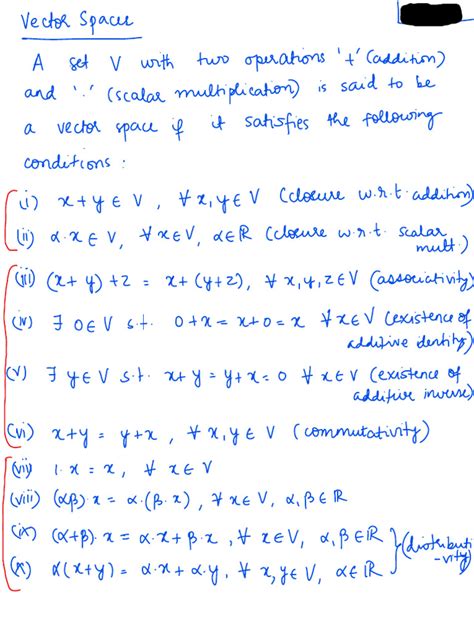 Vector Spaces
A set V with two operations '+' (addition)
and '.' (scalar multiplication) is said to be
a vector space if it satisfies the following
conditions :
(i) x+y ∈ V , ∀ x,y ∈ V (closure w.r.t. addition)
(ii) α.x ∈ V, ∀ x ∈ V, α ∈ ℝ (closure w.r.t. scalar
mult.)
(iii) (x+y)+z = x+(y+z), ∀ x,y,z ∈ V (associativity)
(iv) ∃ 0 ∈ V s.t. 0+x = x+0 = x ∀ x ∈ V (existence of
additive identity)
(v) ∃ y ∈ V s.t. x+y = y+x = 0 ∀ x ∈ V (existence of
additive inverse)
(vi) x+y = y+x , ∀ x,y ∈ V (commutativity)
(vii) 1.x = x, ∀ x ∈ V
(viii) (αβ).x = α.(β.x) , ∀ x ∈ V, α,β ∈ ℝ
(ix) (α+β).x = α.x + β.x , ∀ x ∈ V, α,β ∈ ℝ
(x) α(x+y) = α.x + α.y, ∀ x,y ∈ V, α ∈ ℝ
(distributi
-vity)